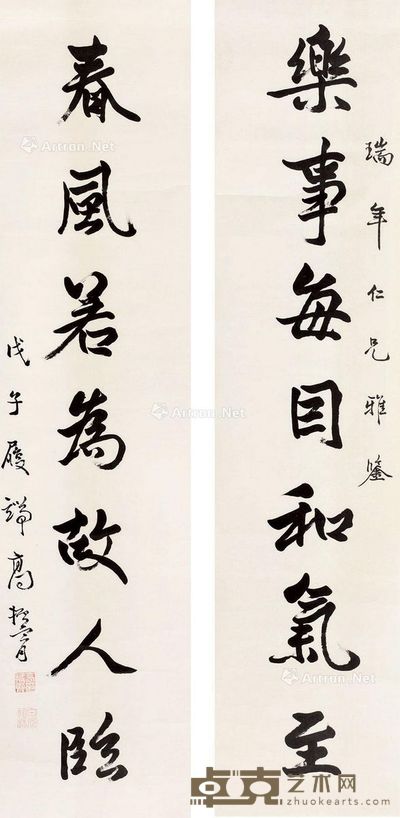 樂事每因和氣至
瑞年仁兄雅鑒
春風若為故人臨
戊子履端高振霄
Artron.Net
Artron.Net
Artron.Net
Artron.Net
卓克艺术网
zhuokearts.com